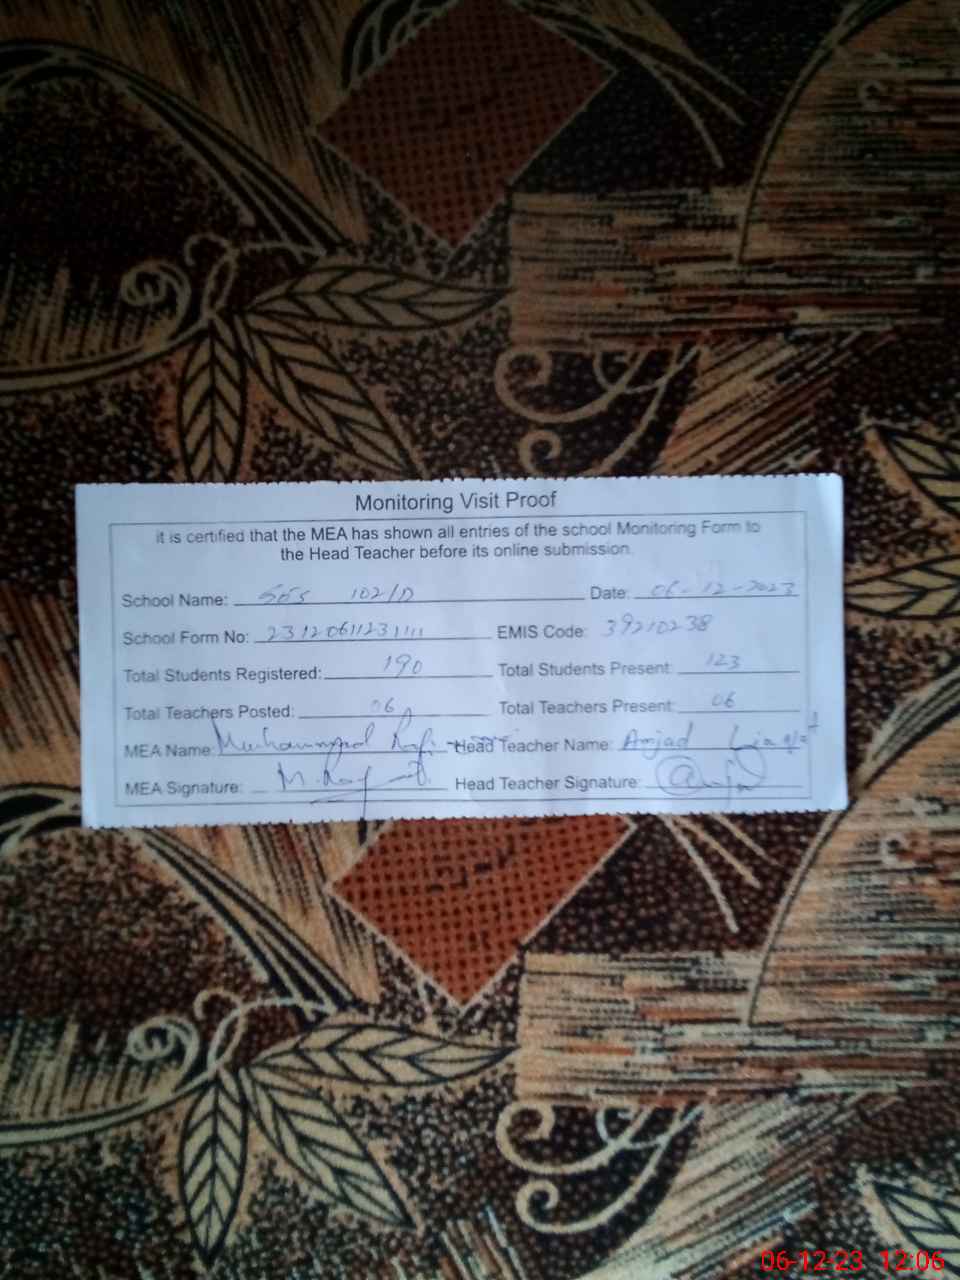 Monitoring Visit Proof
it is certified that the MEA has shown all entries of the school Monitoring Form to
the Head Teacher before its online submission.
School Name: 102/D Date: 06-12-2023
School Form No: EMIS Code: 39210238
Total Students Registered: 190 Total Students Present: 123
Total Teachers Posted: 06 Total Teachers Present: 06
MEA Name: Muhammad Head Teacher Name: Amjad Liaqat
MEA Signature: Head Teacher Signature:
06-12-23 12:06